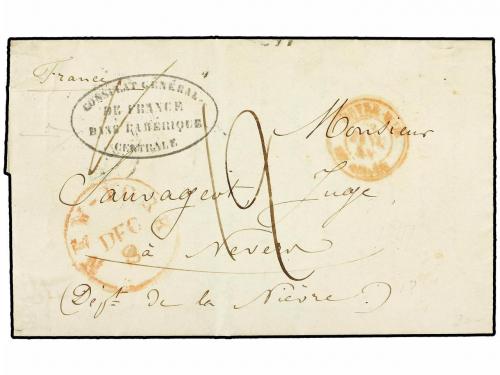 France
CONSULAT GÉNÉRAL
DE FRANCE
DANS L'AMÉRIQUE
CENTRALE
Monsieur
Sauvageot, Juge
à Nevers
(Dépt. de la Nièvre)
NEW-YORK
DEC
12